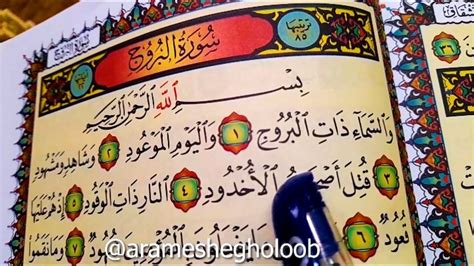 سُورَةُ البُرُوجِ
ترتيبها ٨٥
بِسْمِ اللَّهِ الرَّحْمَٰنِ الرَّحِيمِ
وَالسَّمَاءِ ذَاتِ الْبُرُوجِ ١ وَالْيَوْمِ الْمَوْعُودِ ٢ وَشَاهِدٍ وَمَشْهُودٍ
٣ قُتِلَ أَصْحَابُ الْأُخْدُودِ ٤ النَّارِ ذَاتِ الْوَقُودِ ٥ إِذْ هُمْ عَلَيْهَا
قُعُودٌ ٦ شُهُودٌ ٧ وَمَا نَقَمُوا
@arameshegholoob